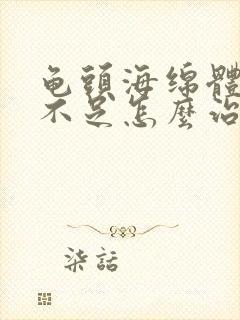 龟頭海绵體
不足怎麼治
柒話